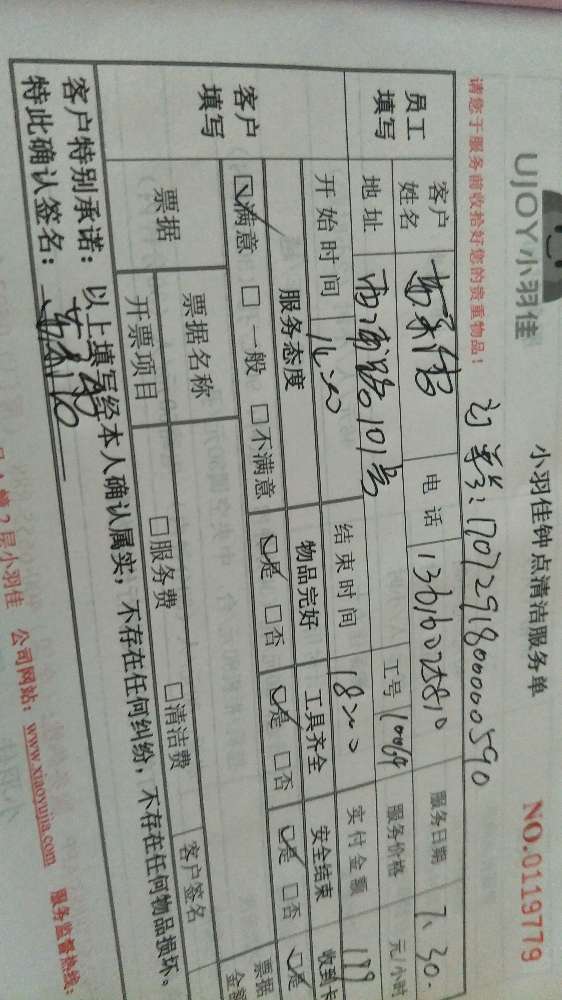 UJOY小羽佳
小羽佳钟点清洁服务单
NO.0119779
请您于服务前收拾好您的贵重物品!
订单号:17072918000000590
员工填写
客户姓名
电话
服务日期 7.30.
地址 101号
工号 10069
服务价格 元/小时
开始时间 16:00
结束时间 18:00
实付金额 199
客户填写
服务态度
物品完好
工具齐全
安全结束
收到
☑满意 □一般 □不满意
☑是 □否
☑是 □否
☑是 □否
☑是
票据
票据名称
客户签名
票据
开票项目
□服务费
□清洁费
客户特别承诺:以上填写经本人确认属实,不存在任何纠纷,不存在任何物品损坏。
特此确认签名:
小羽佳 公司网站:www.xiaoyujia.com 服务监督热线: